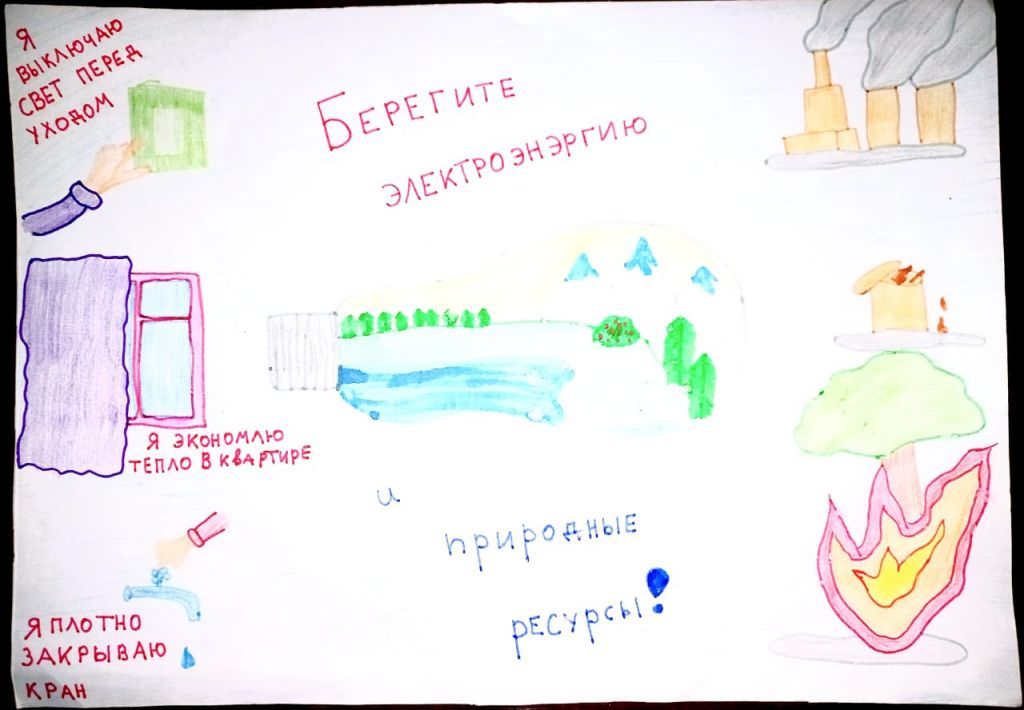 Я
ВЫКЛЮЧАЮ
СВЕТ ПЕРЕД
УХОДОМ
БЕРЕГИТЕ
ЭЛЕКТРОЭНЭРГИЮ
Я ЭКОНОМЛЮ
ТЕПЛО В КВАРТИРЕ
и
природные
РЕСУРСЫ!
Я ПЛОТНО
ЗАКРЫВАЮ
КРАН